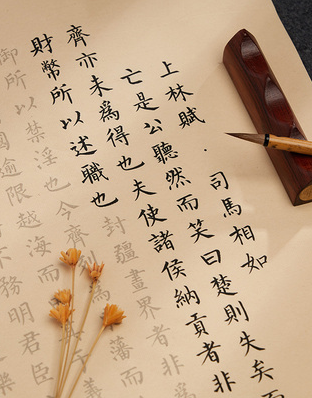 上林賦·司馬相如
亡是公聽然而笑曰楚則失矣而
齊亦未爲得也夫使諸侯納貢者非
財幣所以述職也封疆畫界者非爲
御所以禁淫也今齊列爲藩而
國逾限越海而義
務明君臣
樂